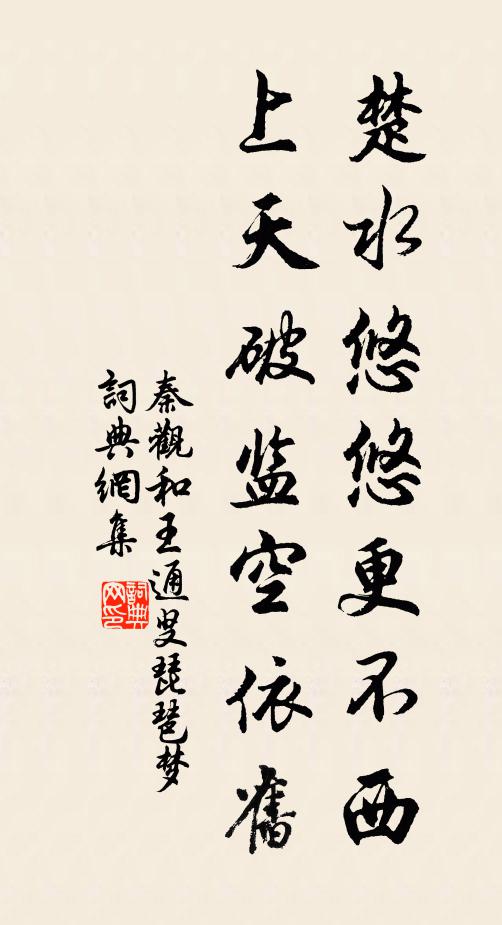 楚水悠悠更不西
上天破监空依舊
秦觀和王通叟琵琶梦
詞典網集
詞典
网印